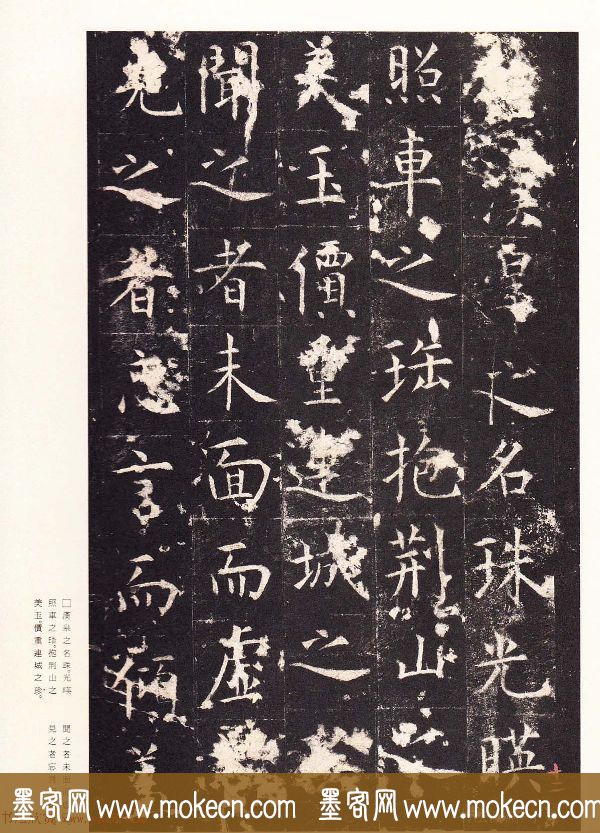 漢皐之名珠光暎
照車之珤抱荆山之
美玉價重連城之
聞之者未面而虛
見之者忘言而
□漢皋之名珠。光暎
照車之珤。抱荊山之
美玉。價重連城之珍。
聞之者未
見之者忘
墨客网 www.mokecn.com 墨客网 www.mokecn.com